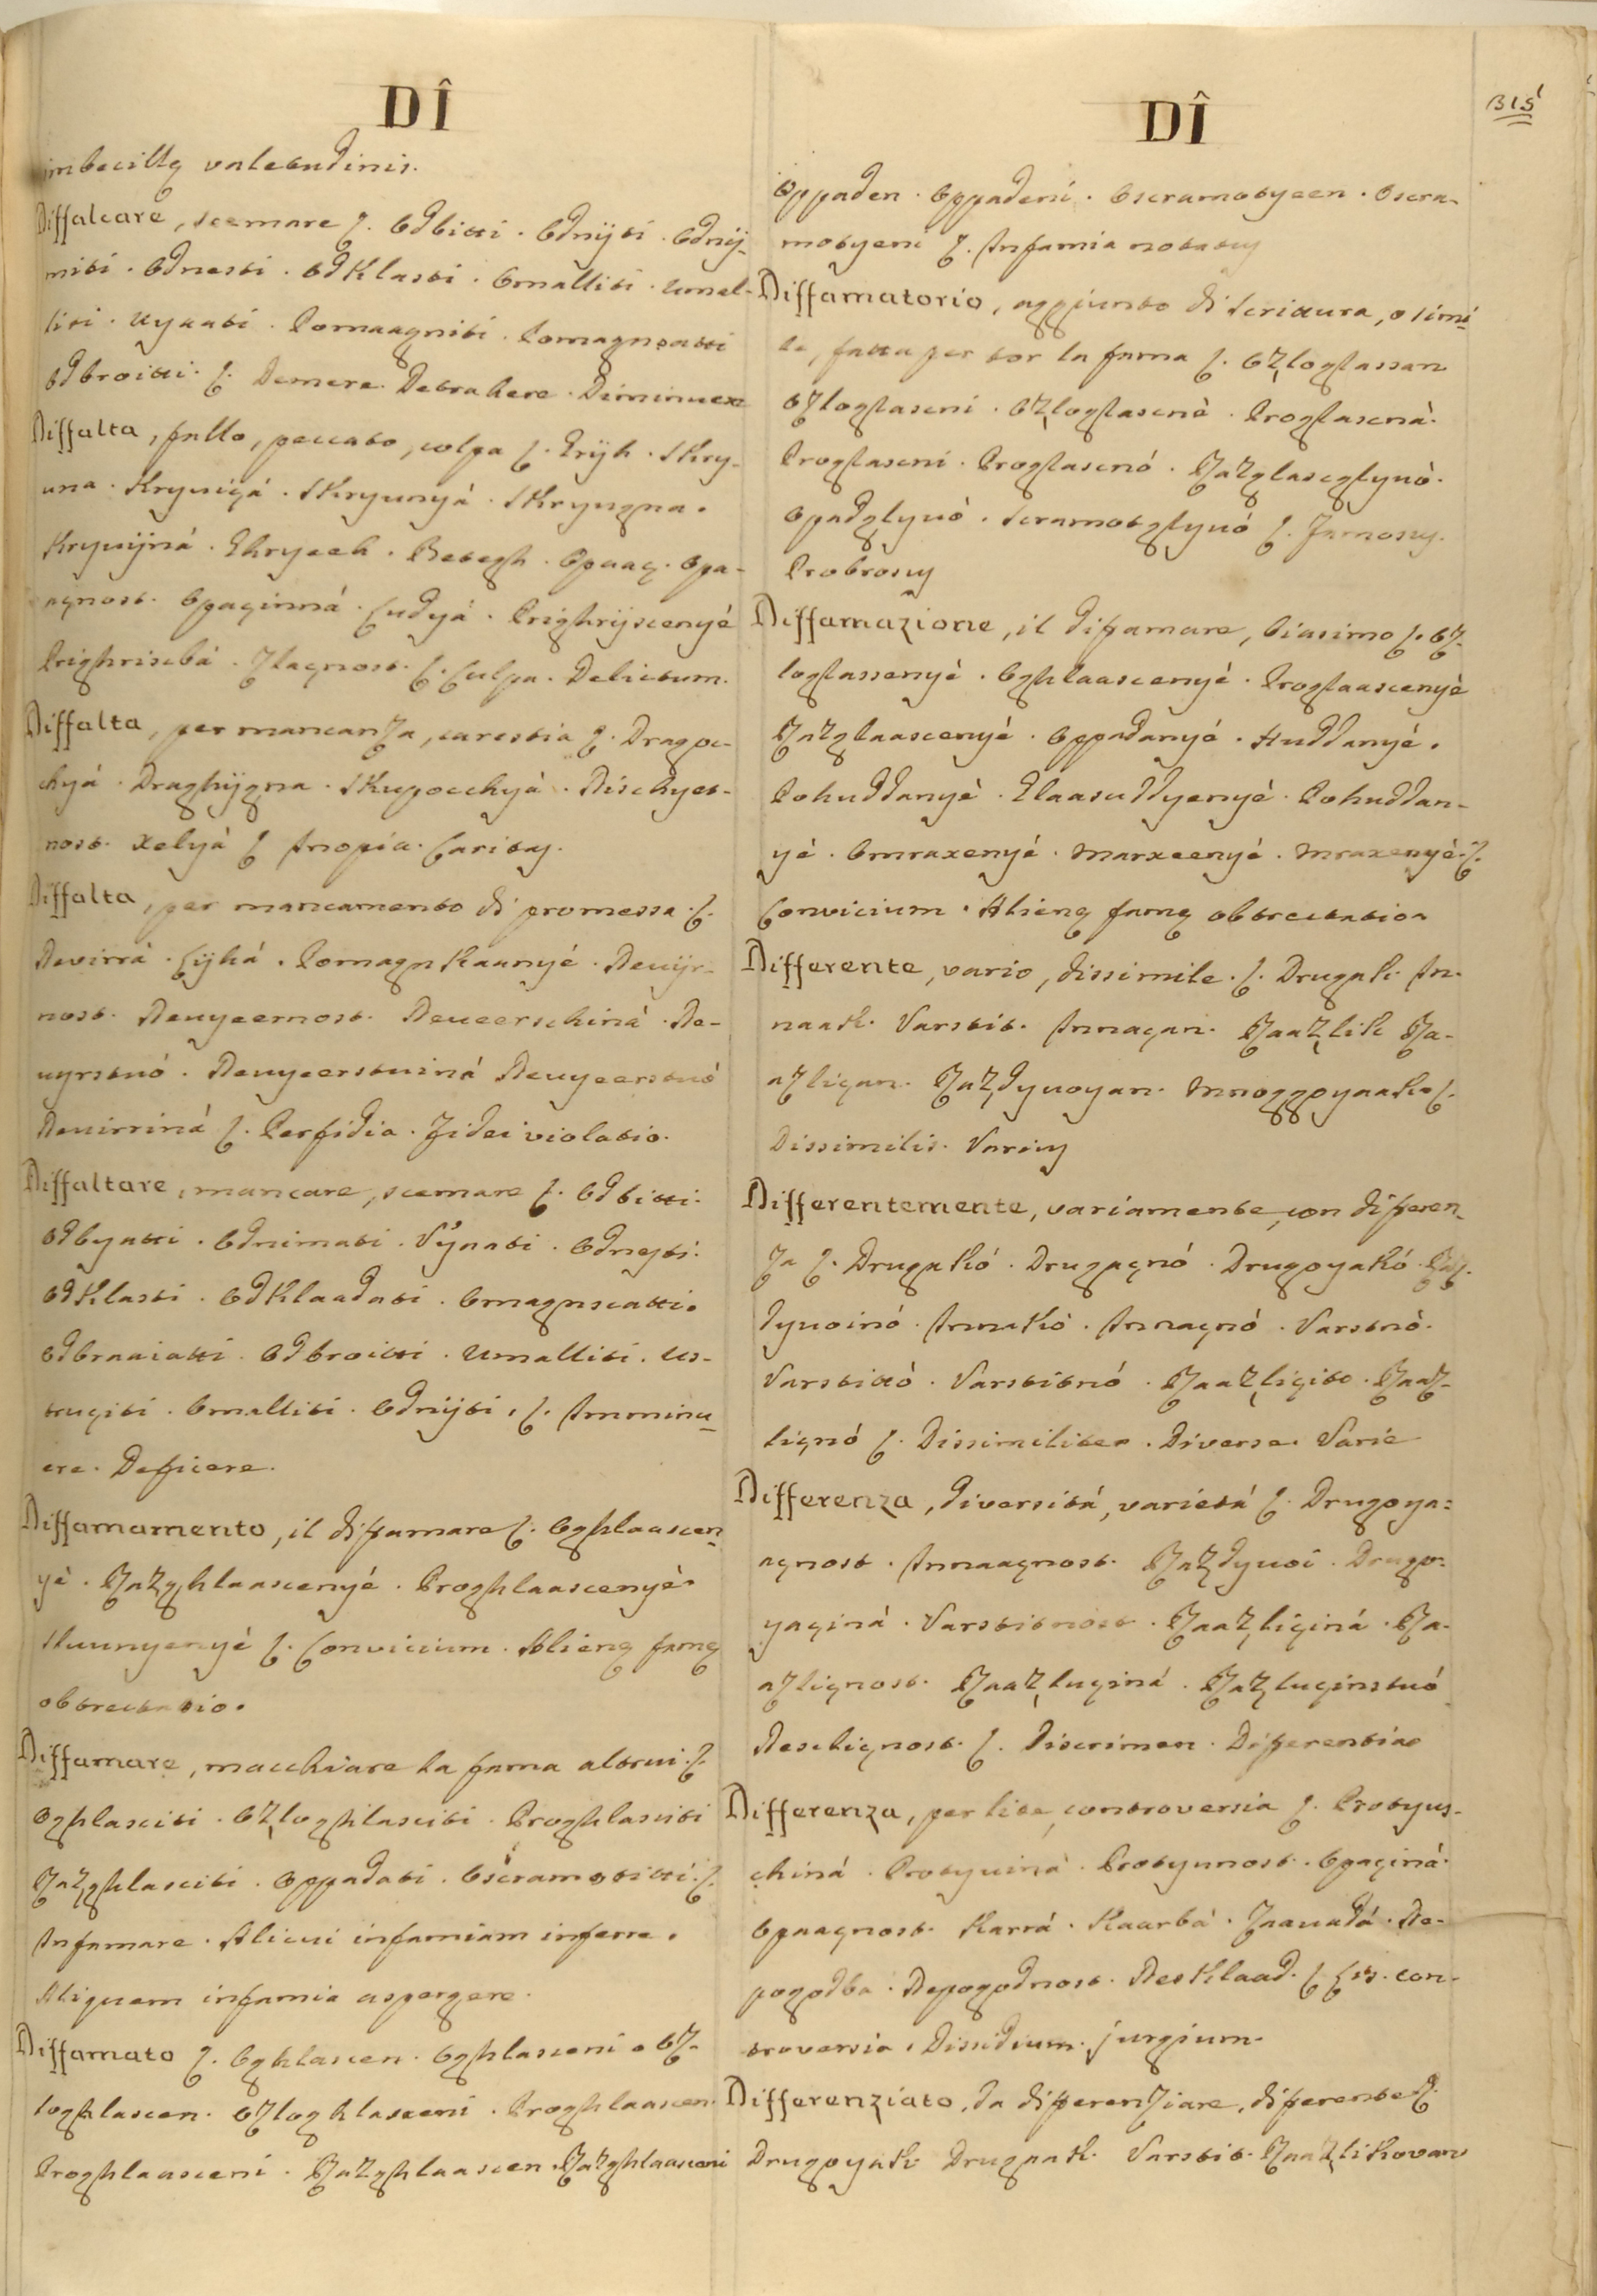 DÎ
imbecillę valetudinis.
Diffalcare, scemare ſ. Odbitti. Odnijti. Odnij-
miti. Odnesti. Odklasti. Omalliti. Umal-
liti. Uyaati. Pomaagniti. Pomagnscatti
Odbroitti. ſ. Demere. Detrahere. Diminuere
Diffalta, fallo, peccato, colpa ſ. Grijh. Skry-
una. Kryuiçá. Skryunyá. Skryugna.
Kryuijná. Ghryeeh. Betegh. Opaaç. Opa-
açnost. Opaçinná. Cudyá. Prighrijscenyé
Prighriscbá. Zlaçnost. ſ. Culpa. Delictum.
Diffalta, per mancanza, carestia ſ. Dragoc-
chyá. Draghijgna. Skupocchyá. Nischyet-
nost. Xelyá ſ Inopia. Caritas.
Diffalta, per mancamento di promessa. ſ.
Nevirrá. Lijhá. Pomagnkaanyé. Neuijr-
nost. Neuyeernost. Neueerschiná. Ne-
uyrstuó. Neuyeerstuiná Neuyeerstuó
Neuirriná ſ. Perfidia. Fidei violatio.
Diffaltare, mancare, scemare ſ. Odbitti.
Odbyatti. Odnimati. Výnati. Odnesti.
Odklasti. Odklaadati. Omagnscatti.
Odbraaiatti. Odbroitti. Umalliti. Us-
truçiti. Omalliti. Odnijti. ſ. Imminu-
ere. Deficere.
Diffamamento, il difamare ſ. Oghlaascen-
yé. Razghlaascenyé. Proghlaascenyé.
Huunyenyé ſ. Convicium. Alienę famę
obtrectatio.
Diffamare, macchiare la fama altrui. ſ
Oghlasciti. Ozloghlasciti. Proghlasciti
Razghlasciti. Oppadati. Oscramotitti. ſ.
Infamare. Alicui infamiam inferre.
Aliquem infamia aspergere.
Diffamato ſ. Oghlascen. Oghlasceni. Oz-
loghlascen. Ozloghlasceni. Proghlaascen.
Proghlaasceni. Razghlaascen. Razghlaasceni
DÎ
315
Oppaden. Oppadeni. Oscramotyeen. Oscra-
motyeni ſ. Infamia notatus
Diffamatorio, aggiunto di scrittura, o simi-
le, fatta per tor la fama ſ. Ozloglassan
Ozloglasceni. Ozloglascnó. Proglascná.
Proglasceni. Proglascnó. Razglascglyuó.
Opadglyuó. Scramotglyuó ſ. Famosus.
Probrosus
Diffamazione, il difamare, biasimo ſ. Oz-
loglassenyé. Oghlaascenyé. Proglaascenyé
Razglaascenyé. Oppadanyé. Huddanyé.
Pohuddanyé. Glaasuddyenyé. Pohuddan-
yé. Omraxenyé. Marxeenyé. Mraxenyé. ſ.
Convicium. Alienę famę obtrectatio
Differente, vario, dissimile. ſ. Drugak. In-
naak. Varstit. Innaçan. Raazlik Ra-
azliçan. Razdyuoyan. Mnoggoyaak ſ.
Dissimilis. Varius
Differentemente, variamente, con differen-
za ſ. Drugakó. Drugaçnó. Drugoyakó. Raz-
dyuoinó. Innakó. Innaçnó. Varstnó.
Varstittó. Varstitnó. Raazliçito. Raaz-
liçnó ſ. Dissimiliter. Diverse. Varie
Differenza, diversitá, varietá ſ. Drugoya-
açnost. Innaaçnost. Razdyuoi. Drugo-
yaçiná. Varstitnost. Raazliçiná. Ra-
azliçnost. Raazluçiná. Razluçinstuó
Nesliçnost. ſ. Discrimen. Differentia
Differenza, per lite, controversia ſ. Protyus-
chiná. Protyuiná. Protyunost. Opaçiná.
Opaaçnost. Karrá. Kaarbá. Zaauadá. Ne-
pogodba. Nepogodnost. Nesklaad. ſ Lis. con-
troversia. Dissidium. jurgium.
Differenziato, da differenziare, differente ſ.
Drugoyak. Drugaak. Varstit. Raazlikovan